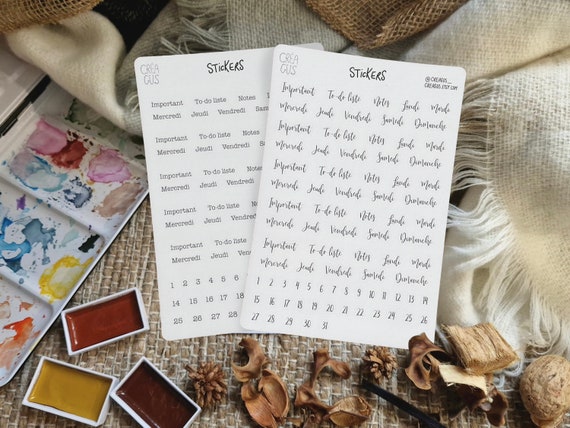 CRÉA
GUS
STICKERS
Important To-do liste Notes
Mercredi Jeudi Vendredi
Important To-do liste Notes
Mercredi Jeudi Vendredi
Important To-do liste
Mercredi Jeudi Vendredi
Important To-do liste
Mercredi Jeudi
Important To-do liste
Mercredi Jeudi
1 2 3 4 5 6
14 15 16 17 18
25 26 27 28
CRÉA
GUS
STICKERS
@CREAGUS__
CREAGUS.ETSY.COM
Important To-do liste Notes Lundi Mardi
Mercredi Jeudi Vendredi Samedi Dimanche
Important To-do liste Notes Lundi Mardi
Mercredi Jeudi Vendredi Samedi Dimanche
Important To-do liste Notes Lundi Mardi
Mercredi Jeudi Vendredi Samedi Dimanche
Important To-do liste Notes Lundi Mardi
Mercredi Jeudi Vendredi Samedi Dimanche
Important To-do liste Notes Lundi Mardi
Mercredi Jeudi Vendredi Samedi Dimanche
1 2 3 4 5 6 7 8 9 10 11 12 13 14
15 16 17 18 19 20 21 22 23 24 25 26
27 28 29 30 31